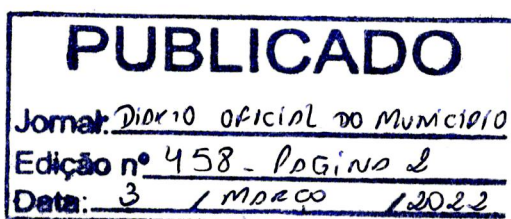 PUBLICADO
Jornal: DIÁRIO OFICIAL DO MUNICÍPIO
Edição nº 458 - PAGINA 2
Data: 3 / MARÇO / 2022